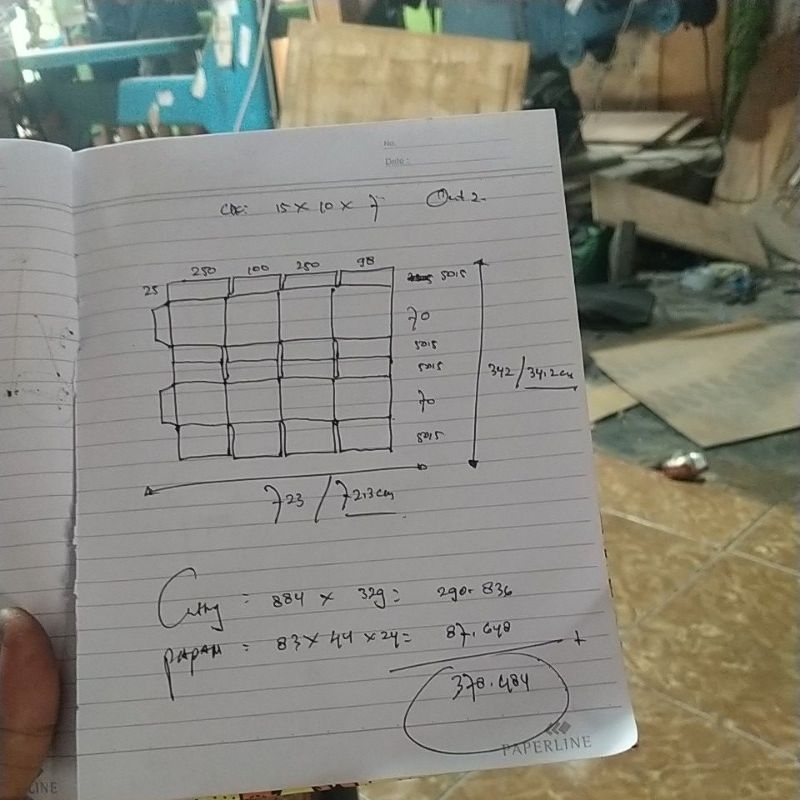 No.
Date :
15 x 10 x 7 Out 2.
250 100 250 98
25
5015
70
5015
5015
70
5015
342 / 34.2 cm
723 / 72.3 cm
= 884 x 329 = 290.836
PAPAN = 83 x 44 x 24 = 87.648
+
378.484
PAPERLINE
LINE